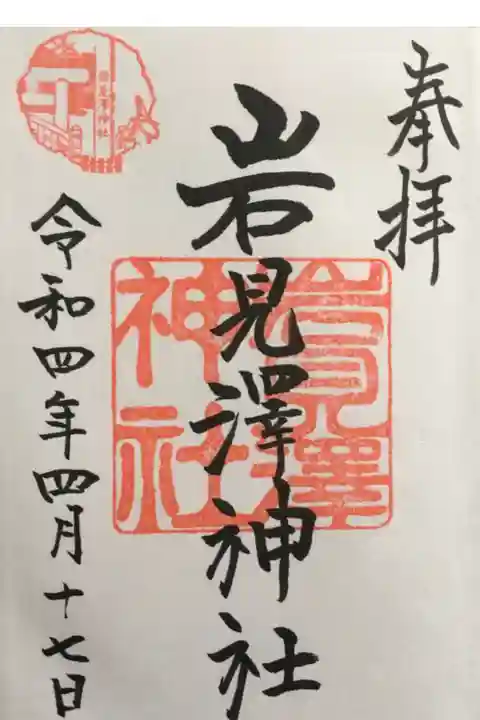 奉拝
岩見澤神社
岩見澤
神社
令和四年四月十七日
岩見澤神社